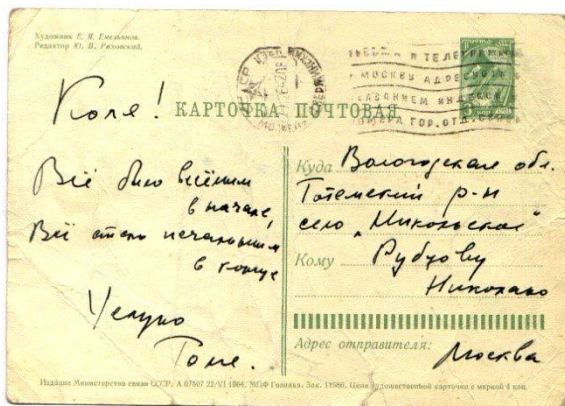 Художник Е. Я. Емельянов.
Редактор Ю. П. Ряховский.
КАРТОЧКА ПОЧТОВАЯ
МОСКВУ АДРЕСУЙТЕ
Коля!
Всё было весёлым
в начале,
Всё стало печальным
в конце
Целую
Тоне.
Куда Вологодская обл.
Тотемский р-н
село „Никольское"
Кому Рубцову
Николаю
Адрес отправителя:
Москва
Издание Министерства связи СССР. А 07507 22/VI 1964. МПФ Гознака. Зак. 11986. Цена художественной карточки с маркой 4 коп.